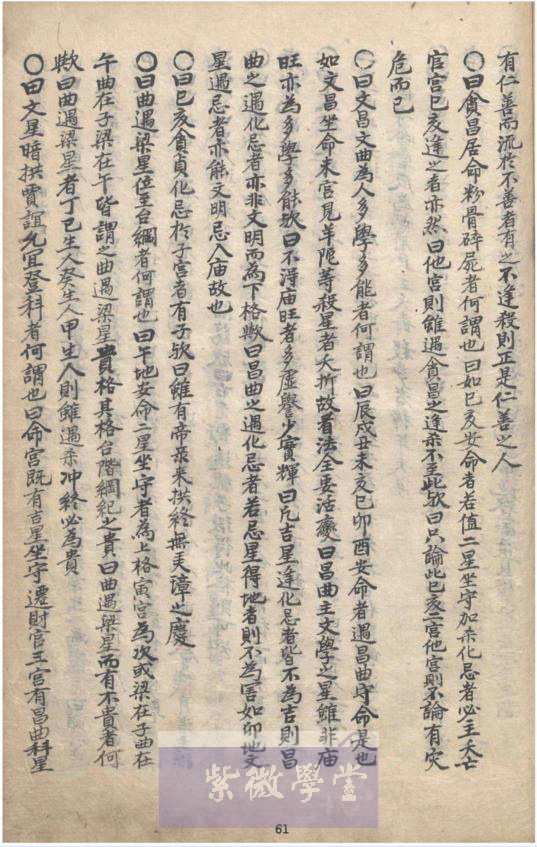 有仁善而流於不善者有之不逢殺則正是仁善之人
〇曰貪昌居命粉骨碎屍者何謂也曰如巳亥安命者若值二星坐守加杀化忌者必主夭亡
官宫巳亥逢之者亦然曰他宫則雖遇貪昌之逢杀不至此欤曰只論此巳亥二宫他宫則不論有灾
危而已
〇曰文昌文曲為人多學多能者何謂也曰辰戌丑未亥巳卯酉安命者遇昌曲守命是也
如文昌坐命未宫見羊陀等殺星者夭折故看法全要活變曰昌曲主文學之星雖非庙
旺亦為多學多能欤曰不淂庙旺者多虛譽少實輝曰凡吉星逢化忌者皆不為吉則昌
曲之遇化忌者亦非文明而為下格欤曰昌曲之遇化忌者若忌星得地者則不為害如卯地文
星遇忌者亦能文明忌入庙故也
〇曰巳亥貪貞化忌於子宫者有子欤曰雖有帝最来拱終無弄璋之慶
〇曰曲遇梁星位至台綱者何謂也曰午地安命二星坐守者為上格寅宫為次或梁在子曲在
午曲在子梁在午皆謂之曲遇梁星貴格其格台階綱紀之貴曰曲遇梁星而有不貴者何
欤曰曲遇梁星者丁己生人癸生人甲生人則雖遇杀冲終必為貴
〇曰文星暗拱賈誼允宜登科者何謂也曰命宫既有吉星坐守遷財官三宫有昌曲科星
紫微學堂
61